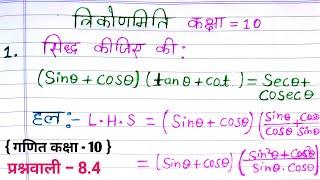 त्रिकोणमिति कक्षा = 10
1. सिद्ध कीजिए की:
(Sinθ + cosθ) (tanθ + cot) = Secθ + cosecθ
हल:- L.H.S = (Sinθ + cosθ) (Sinθ/cosθ + cosθ/Sinθ
{ गणित कक्षा - 10 }
प्रश्नवाली - 8.4
= (Sinθ + cosθ) (Sin²θ + cosθ/Sinθ.cosθ